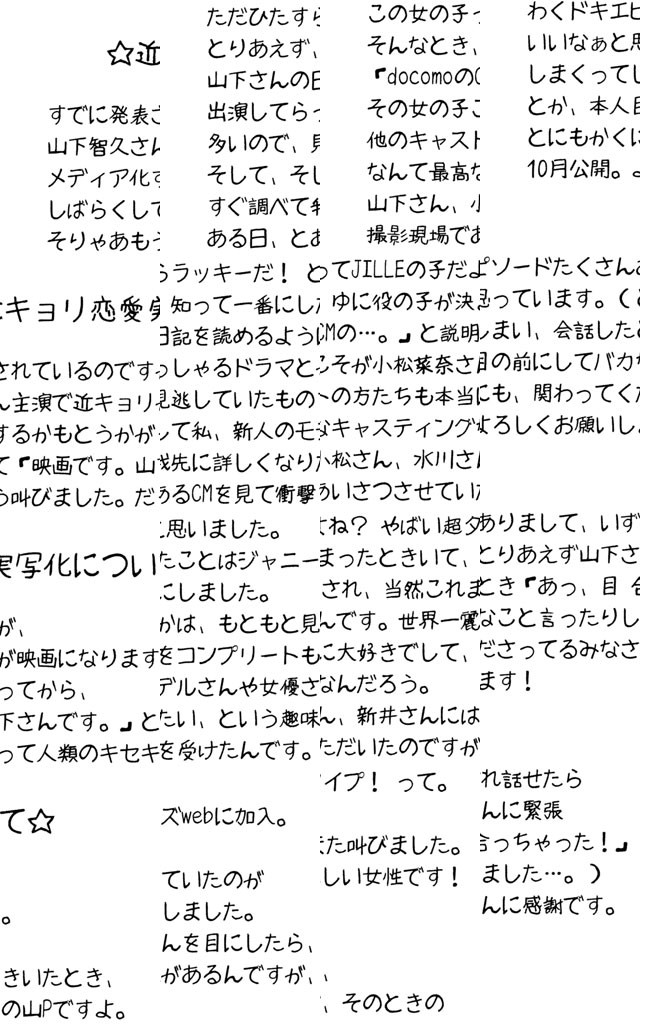 ☆近キョリ恋愛実写化について☆
すでに発表されているのですが、
山下智久さん主演で近キョリが映画になります。
メディア化するかもとうかがってから、
しばらくして「映画です。山下さんです。」ときいたとき、
そりゃあもう叫びました。だって人類のキセキの山Pですよ。
ただひたすらラッキーだ！ と思いました。
とりあえず、知って一番にしたことはジャニーズwebに加入。
山下さんの日記を読めるようにしました。
出演してらっしゃるドラマとかは、もともと見ていたのが
多いので、見逃していたものをコンプリートもしました。
そして、そして私、新人のモデルさんや女優さんを目にしたら、
すぐ調べて我先に詳しくなりたい、という趣味があるんですが、
ある日、とあるCMを見て衝撃を受けたんです。
この女の子ってJILLEの子だよね？ やばい超タイプ！ って。
そんなとき、ゆに役の子が決まったときいて、
「docomoのCMの…。」と説明され、当然これまた叫びました。
その女の子こそが小松菜奈さんです。世界一麗しい女性です！
他のキャストの方たちも本当に大好きでして、
なんて最高なキャスティングなんだろう。
山下さん、小松さん、水川さん、新井さんには、
撮影現場であいさつさせていただいたのですが、そのときの
わくドキエピソードたくさんありまして、いずれ話せたら
いいなぁと思っています。（とりあえず山下さんに緊張
しまくってしまい、会話したとき「あっ、目 合っちゃった！」
とか、本人目の前にしてバカなこと言ったりしました…。）
とにもかくにも、関わってくださってるみなさんに感謝です。
10月公開。よろしくお願いします！